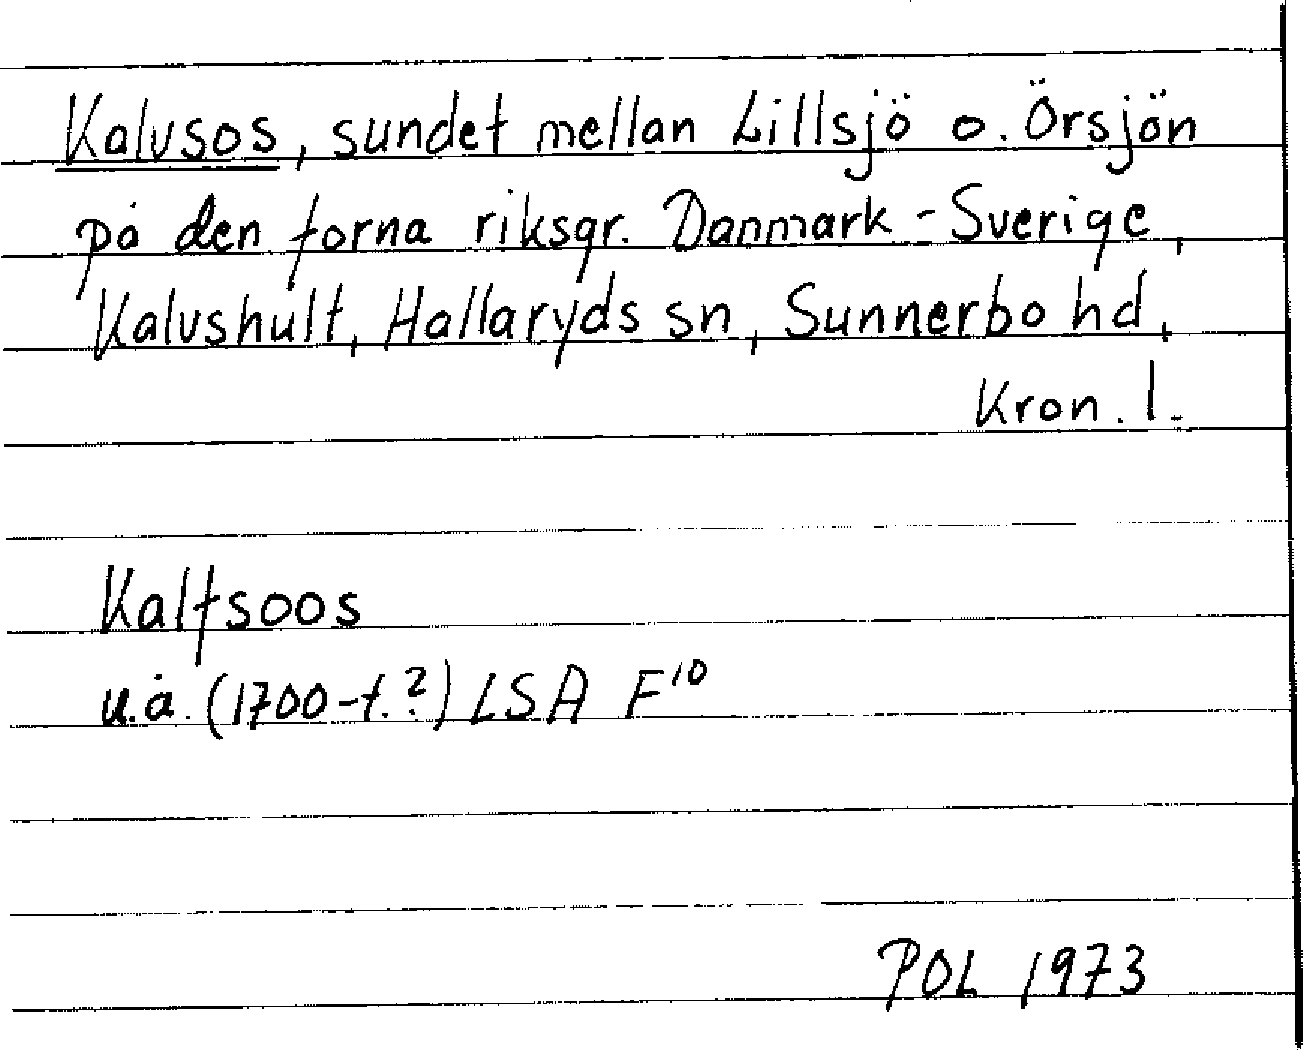 Kalvsos, sundet mellan Lillsjö o. Örsjön
på den forna riksgr. Danmark-Sverige,
Kalvshult, Hallaryds sn, Sunnerbo hd,
Kron. l.
Kalfsoos
u.å. (1700-t.?) LSA F10
POL 1973